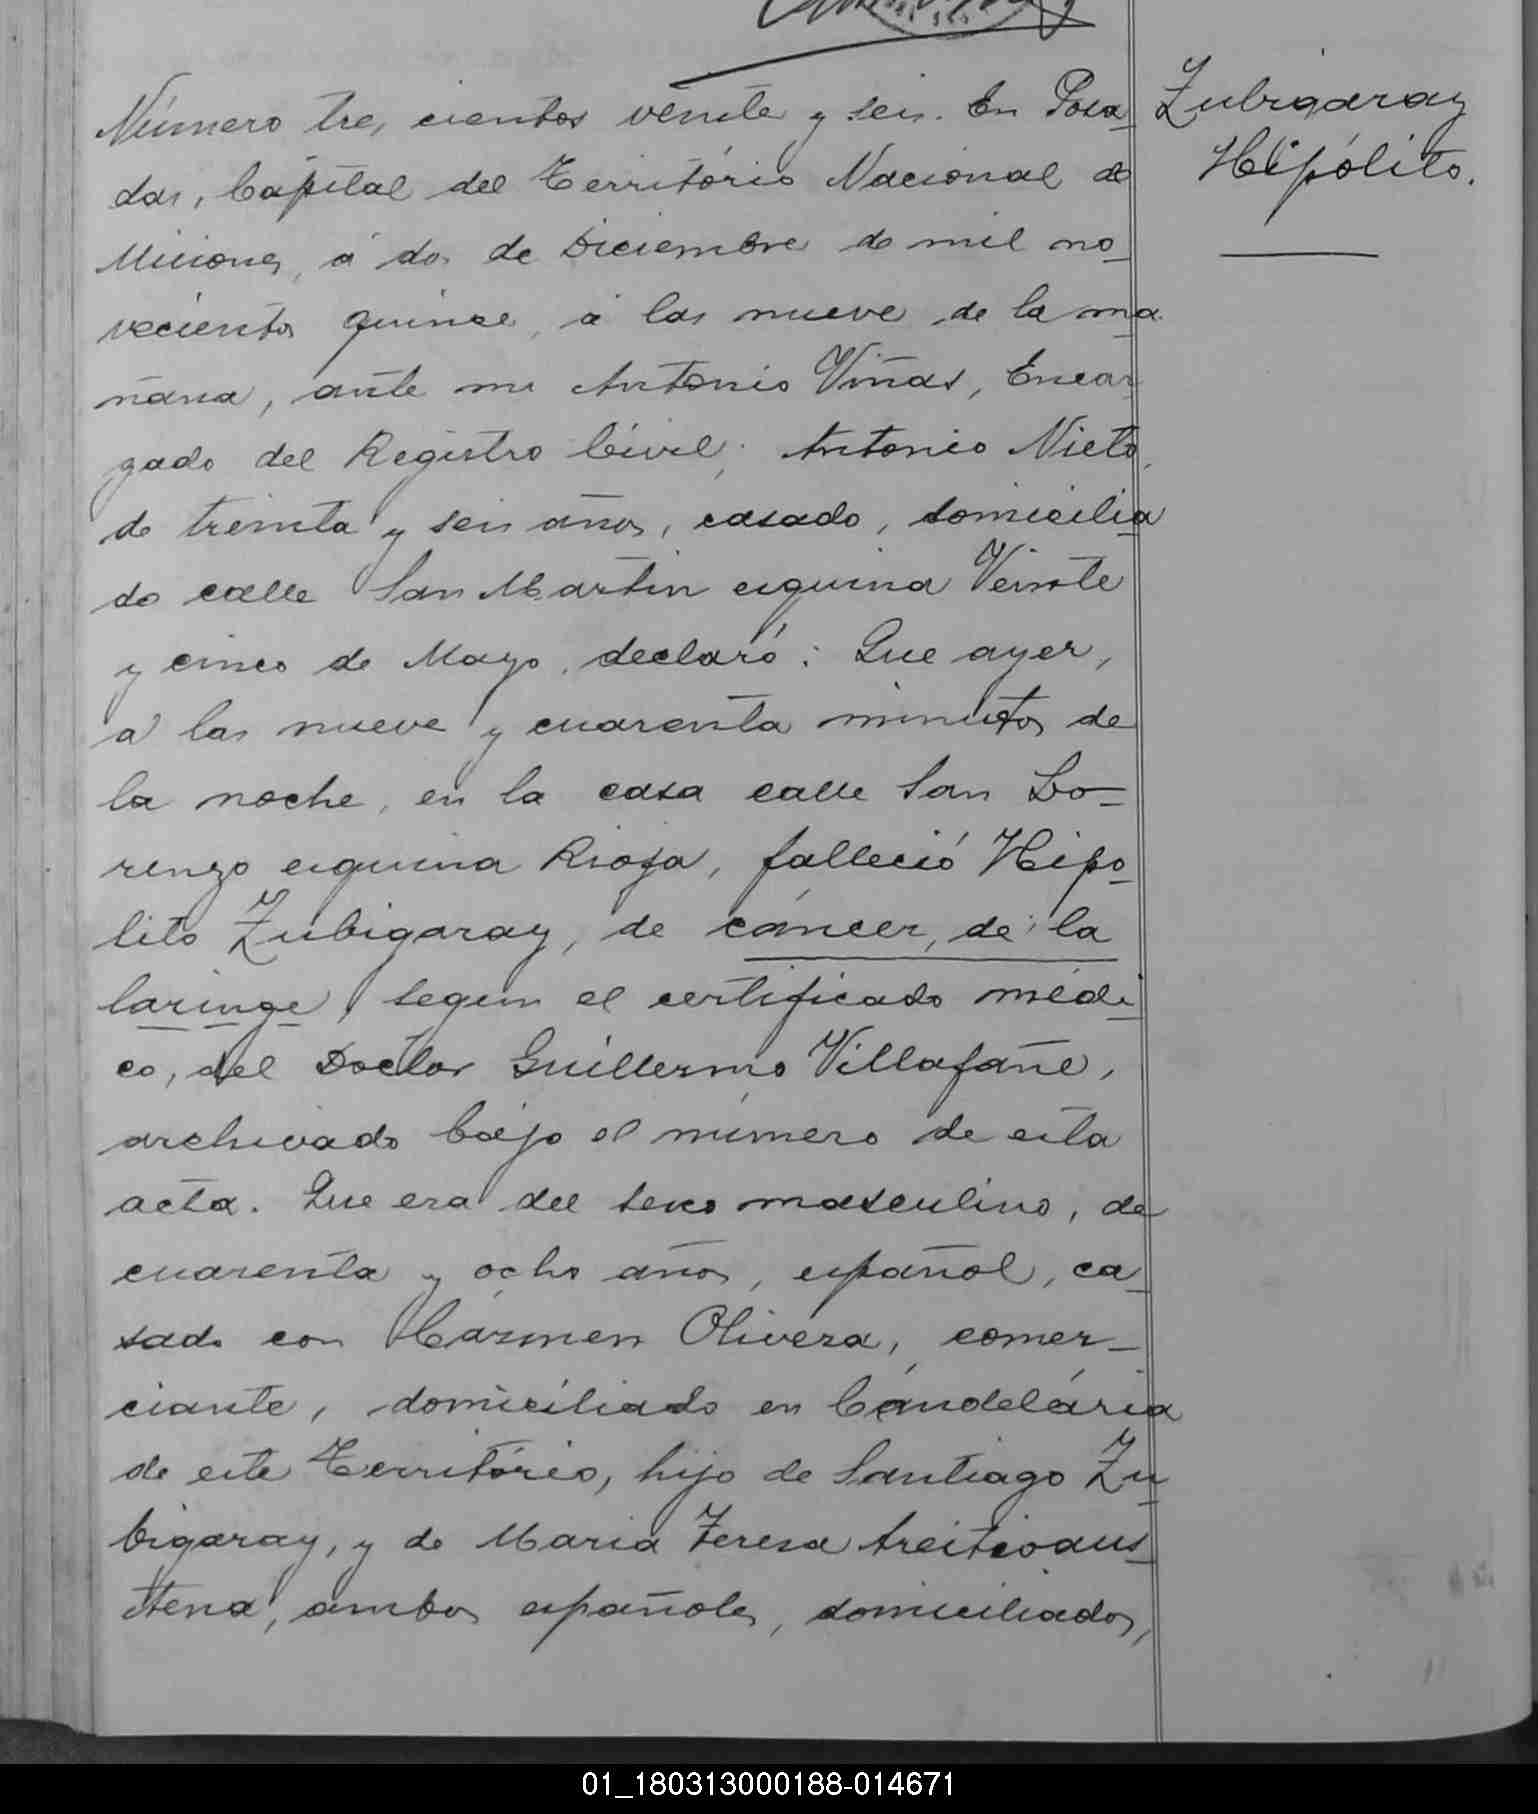 Número tres cientos veinte y seis. En Posa
das, Capital del Território Nacional de
Misiones, á dos de Diciembre de mil no_
vecientos quince, á las nueve de la ma_
ñana, ante mi Antonio Viñas, Encar
gado del Registro Civil; Antonio Nieto,
de treinta y seis años, casado, domicilia
do calle San Martin esquina Veinte
y cinco de Mayo, declaró: Que ayer,
a las nueve y cuarenta minutos de
la noche, en la casa calle San Lo_
renzo esquina Rioja, falleció Hipo_
lito Zubigaray, de cáncer, de la
laringe, segun el certificado médi_
co, del Doctor Guillermo Villafañe,
archivado bajo el número de esta
acta. Que era del sexo masculino, de
cuarenta y ocho años, español, ca_
sado con Cármen Olivera, comer_
ciante, domiciliado en Candelária
de este Território, hijo de Santiago Zu_
bigaray, y de Maria Teresa
ambos españoles, domiciliados,
Zubigaray
Hipólito.
01_180313000188-014671